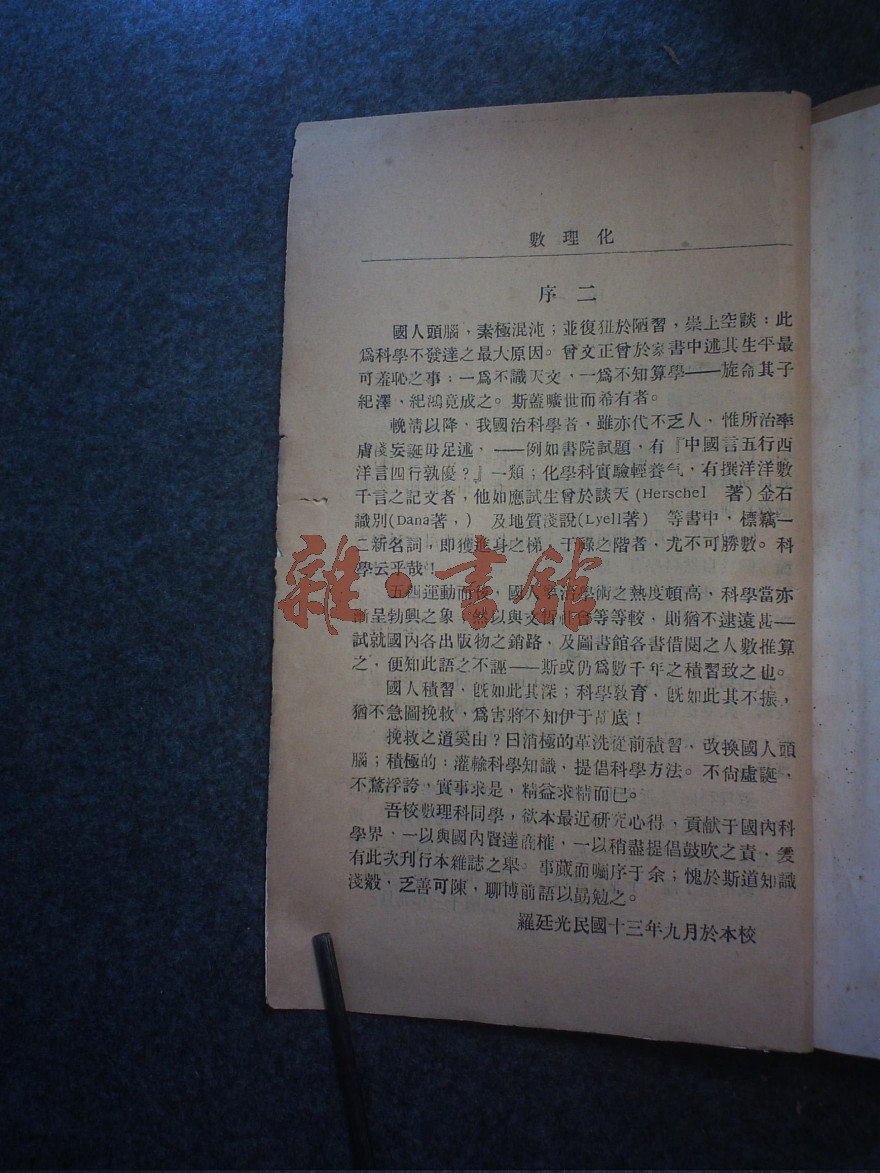 數理化
序二
國人頭腦，素極混沌；並復狃於陋習，崇上空談：此
爲科學不發達之最大原因。曾文正曾於家書中述其生平最
可羞恥之事：一爲不識天文、一爲不知算學——旋命其子
紀澤、紀鴻竟成之。斯蓋曠世而希有者。
晚淸以降、我國治科學者，雖亦代不乏人．惟所治率
膚淺妄誕毋足述．——例如書院試題．有『中國言五行西
洋言四行孰優？』一類；化學科實驗輕養气．有撰洋洋數
千言之記文者，他如應試生曾於談天(Herschel 著)金石
識別(Dana著，) 及地質淺説(Lyell著) 等書中，標竊一
二新名詞，即獲進身之梯，干祿之階者．尤不可勝數。科
學云乎哉！
五四運動而後，國人學術之熱度頓高，科學當亦
漸呈勃興之象；然以與文哲社會等等較．則猶不逮遠甚—
試就國內各出版物之銷路，及圖書館各書借閱之人數推算
之，便知此語之不誣——斯或仍爲數千年之積習致之也。
國人積習．旣如此其深；科學敎育、旣如此其不振，
猶不急圖挽救．爲害將不知伊于胡底！
挽救之道奚由？曰消極的革洗從前積習．改換國人頭
腦；積極的：灌輸科學知識，提倡科學方法。不尙虛誕，
不騖浮誇，實事求是，精益求精而已。
吾校數理科同學，欲本最近研究心得，貢献于國內科
學界．一以與國內賢達商榷，一以稍盡提倡鼓吹之責．爰
有此次刊行本雜誌之舉。事蕆而囑序于余；愧於斯道知識
淺穀．乏善可陳，聊博前語以勗勉之。
羅廷光民國十三年九月於本校
雜·書館